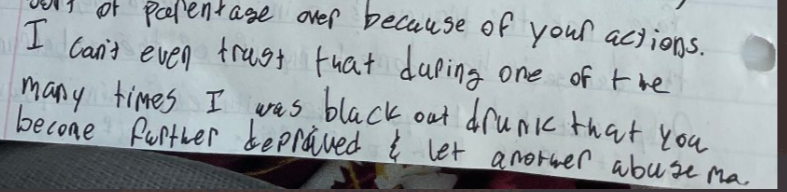 of parentage over because of your actions.
I can't even trust that during one of the
many times I was black out drunk that you
become further depraved & let another abuse me